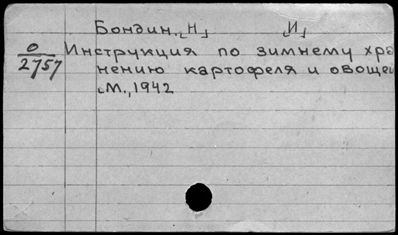 Бондин, [Н] [И]
О
2757
Инструкция по зимнему хра
нению картофеля и овощей
[М., 1942